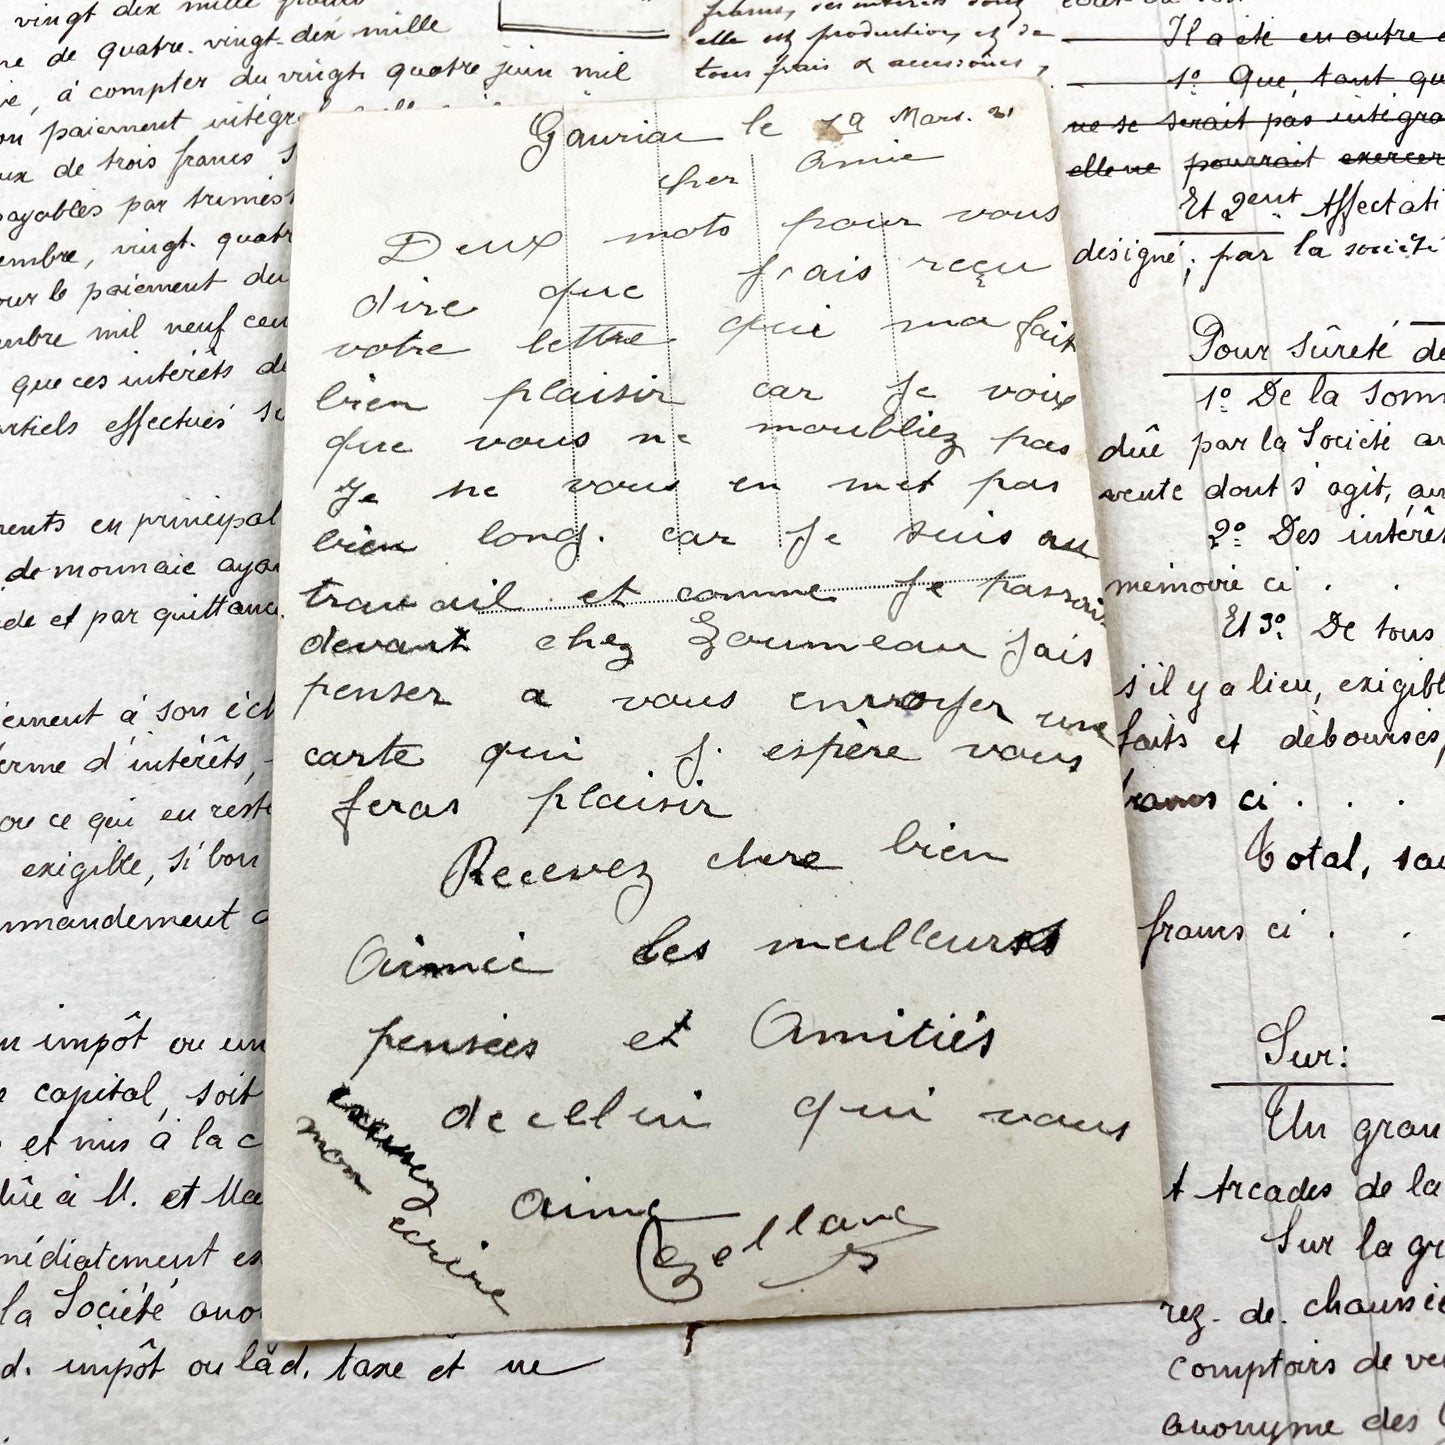 vingt dix mille francs
de quatre-vingt-dix mille
, à compter du vingt quatre juin mil
paiement intégral
de trois francs
payables par
vingt-quatre
pour le paiement du
mil neuf cen
que ces intérêts de
effectués
en principal
de monnaie
et par quittanc
à son
terme d'intérêts,
ou ce qui en reste
exigible, si bon
impôt ou un
capital, soit
et mis à la c
à M. et Ma
la Société ano
impôt ou lad. taxe et ne
francs, ses intérêts sous
elle est production, et de
tous frais & accessoires,
Gauriac le 19 Mars. 21
cher amie
Deux mots pour vous
dire que j'ais reçu
votre lettre qui ma fait
bien plaisir car Je voix
que vous ne moubliez pas
Je ne vous en met pas
bien long. car Je suis au
travail et comme Je passais
devant chez Loumeau Jais
penser a vous envoyer une
carte qui j'espère vous
feras plaisir
Recevez chere bien
Aimée les meilleurs
pensées et Amitiés
de cellui qui vous
aime
excusez
mon
écrire
Il a été en outre
1º Que, tant qu
ne se serait pas intégra
elle ne pourrait exercer
Et 2ent Affectati
désigné, par la société
Pour sûreté de
1º De la Somm
dûe par la Société an
vente dont s'agit, au
2º Des intérêt
mémoire ci . .
Et 3º De tous
s'il y a lieu, exigibl
faits et débourses,
francs ci . . .
Total, sau
francs ci . .
Sur:
Un gran
Arcades de la
Sur la gr
rez-de-chaussée
comptoirs de ve
anonyme des